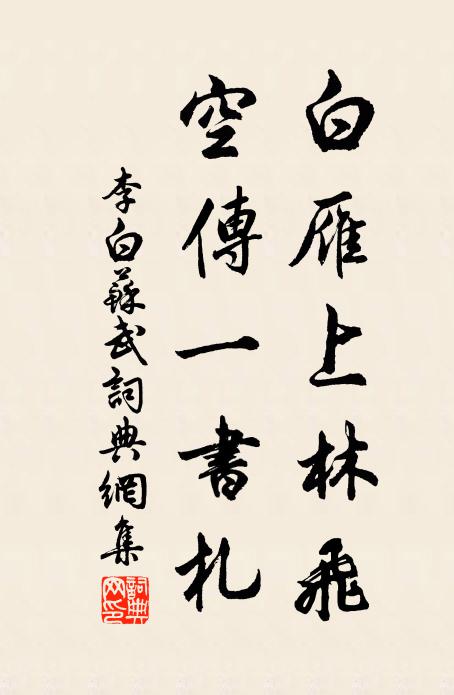 白雁上林飛
空傳一書札
李白蘇武詞典網集
詞典網印